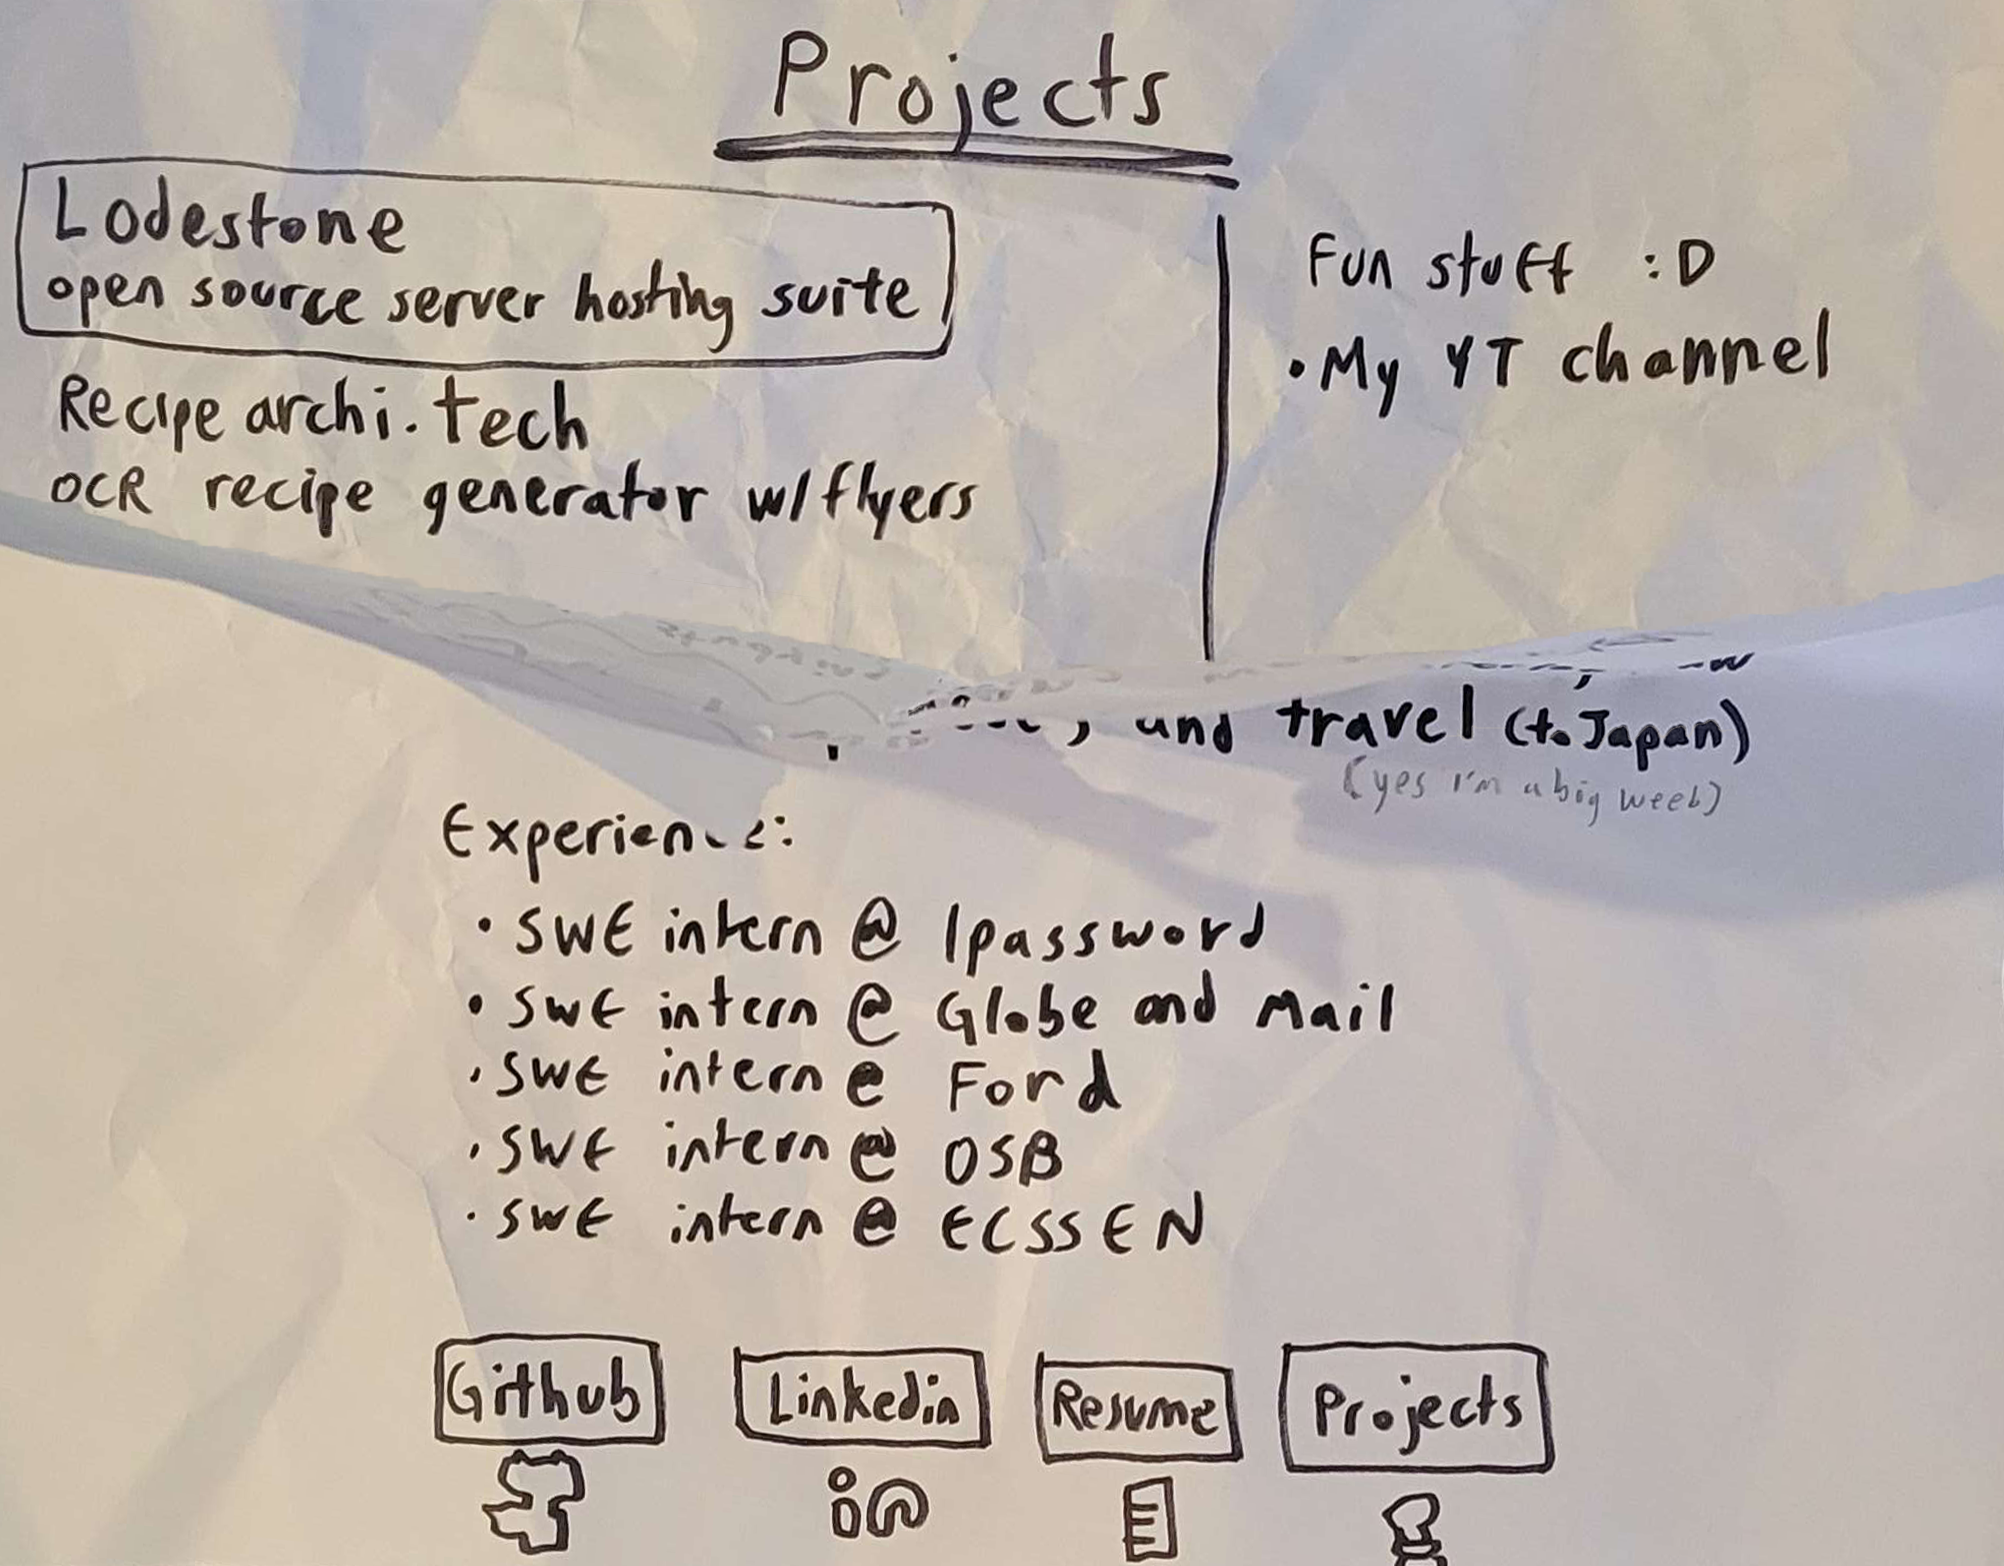 Projects
Lodestone
open source server hosting suite
Recipe archi.tech
OCR recipe generator w/flyers
Fun stuff :D
• My YT channel
, and travel (to Japan)
(yes I'm a big weeb)
Experience:
• SWE intern @ 1password
• SWE intern @ Globe and Mail
• SWE intern @ Ford
• SWE intern @ OSB
• SWE intern @ ECSSEN
Github
Linkedin
Resume
Projects
in